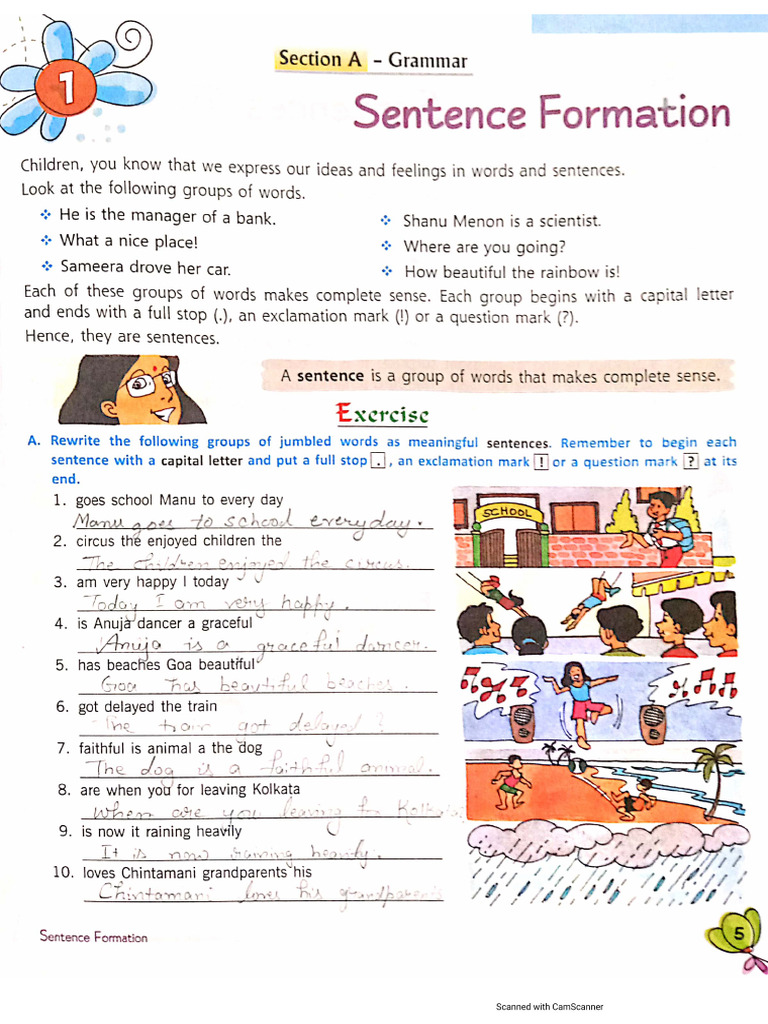 1
Section A – Grammar
Sentence Formation
Children, you know that we express our ideas and feelings in words and sentences.
Look at the following groups of words.
He is the manager of a bank.
Shanu Menon is a scientist.
What a nice place!
Where are you going?
Sameera drove her car.
How beautiful the rainbow is!
Each of these groups of words makes complete sense. Each group begins with a capital letter
and ends with a full stop (.), an exclamation mark (!) or a question mark (?).
Hence, they are sentences.
A sentence is a group of words that makes complete sense.
Exercise
A. Rewrite the following groups of jumbled words as meaningful sentences. Remember to begin each
sentence with a capital letter and put a full stop ., an exclamation mark ! or a question mark ? at its
end.
1. goes school Manu to every day
Manu goes to school everyday.
SCHOOL
2. circus the enjoyed children the
The children enjoyed the circus.
3. am very happy I today
Today I am very happy.
4. is Anuja dancer a graceful
Anuja is a graceful dancer.
5. has beaches Goa beautiful
Goa has beautiful beaches.
6. got delayed the train
The train got delayed ?
7. faithful is animal a the dog
The dog is a faithful animal.
8. are when you for leaving Kolkata
When are you leaving for Kolkata
9. is now it raining heavily
It is now raining heavily.
10. loves Chintamani grandparents his
Chintamani loves his grandparents
Sentence Formation
5
Scanned with CamScanner